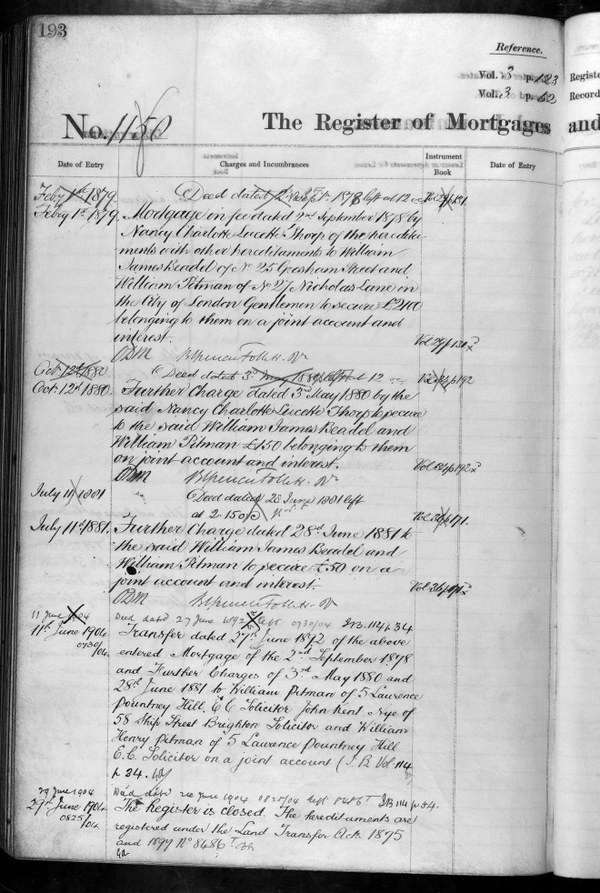 193
Reference.
Vol. 3 p. 123
Vol. 3 p. 62
Registe
Record
No. 1150 The Register of Mortgages and
Date of Entry
Charges and Incumbrances
Instrument
Book
Date of Entry
Feby 1st 1879.
Deed dated 2 Sept 1878 left at 12
Vol 29 p 131.
Feby 1st 1879.
Mortgage in fee dated 2nd September 1878 by
Nancy Charlotte Lucette Thorp of the heredita-
ments with other hereditaments to William
James Beadel of No. 25 Gresham Street and
William Pitman of No 27 Nicholas Lane in
the City of London Gentlemen to secure £2100
belonging to them on a joint account and
interest.
Vol 29 p 131
B Spencer Follett. Rr
Oct. 12th 1880
Deed dated 3rd May 1880 left at 12
Vol 34 p 192
Oct. 12th 1880.
Further Charge dated 3rd May 1880 by the
said Nancy Charlotte Lucette Thorp to secure
to the said William James Beadel and
William Pitman £150 belonging to them
on joint account and interest.
Vol 34 p 192
B Spencer Follett. Rr
July 11 1881
Deed dated 28 June 1881 left
at 2.15
Vol 36 p 171.
July 11th 1881.
Further Charge dated 28th June 1881 to
the said William James Beadel and
William Pitman to secure £50 on a
joint account and interest.
Vol 36 p 171
B Spencer Follett. Rr
11 June 1904
Deed dated 27 June 1892 left 0730/04 IB. 114 p. 34
11th June 1904
0730/04
Transfer dated 27th June 1892 of the above
entered Mortgage of the 2nd September 1878
and Further Charges of 3rd May 1880 and
28th June 1881 to William Pitman of 5 Laurence
Pountney Hill, E C Solicitor John Kent Nye of
58 Ship Street Brighton Solicitor and William
Henry Pitman of 5 Lawence Pountney Hill
E.C. Solicitor on a joint account (I. B. Vol. 114
p 34.
27 June 1904
Deed dated 24 June 1904 0825/04 left IB 114 p. 34.
27th June 1904
0825/04
The Register is closed. The hereditaments are
registered under the Land Transfer Acts 1875
and 1897 No 8486